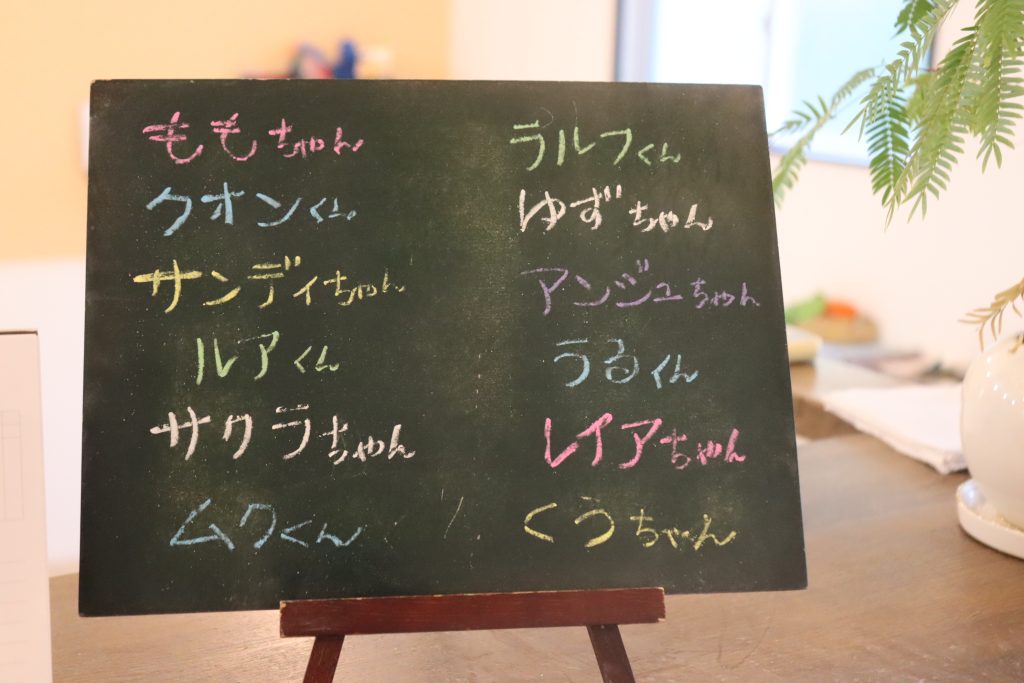 ももちゃん
クオンくん
サンディちゃん
ルアくん
サクラちゃん
ムクくん
ラルフくん
ゆずちゃん
アンジュちゃん
うるくん
レイアちゃん
くうちゃん